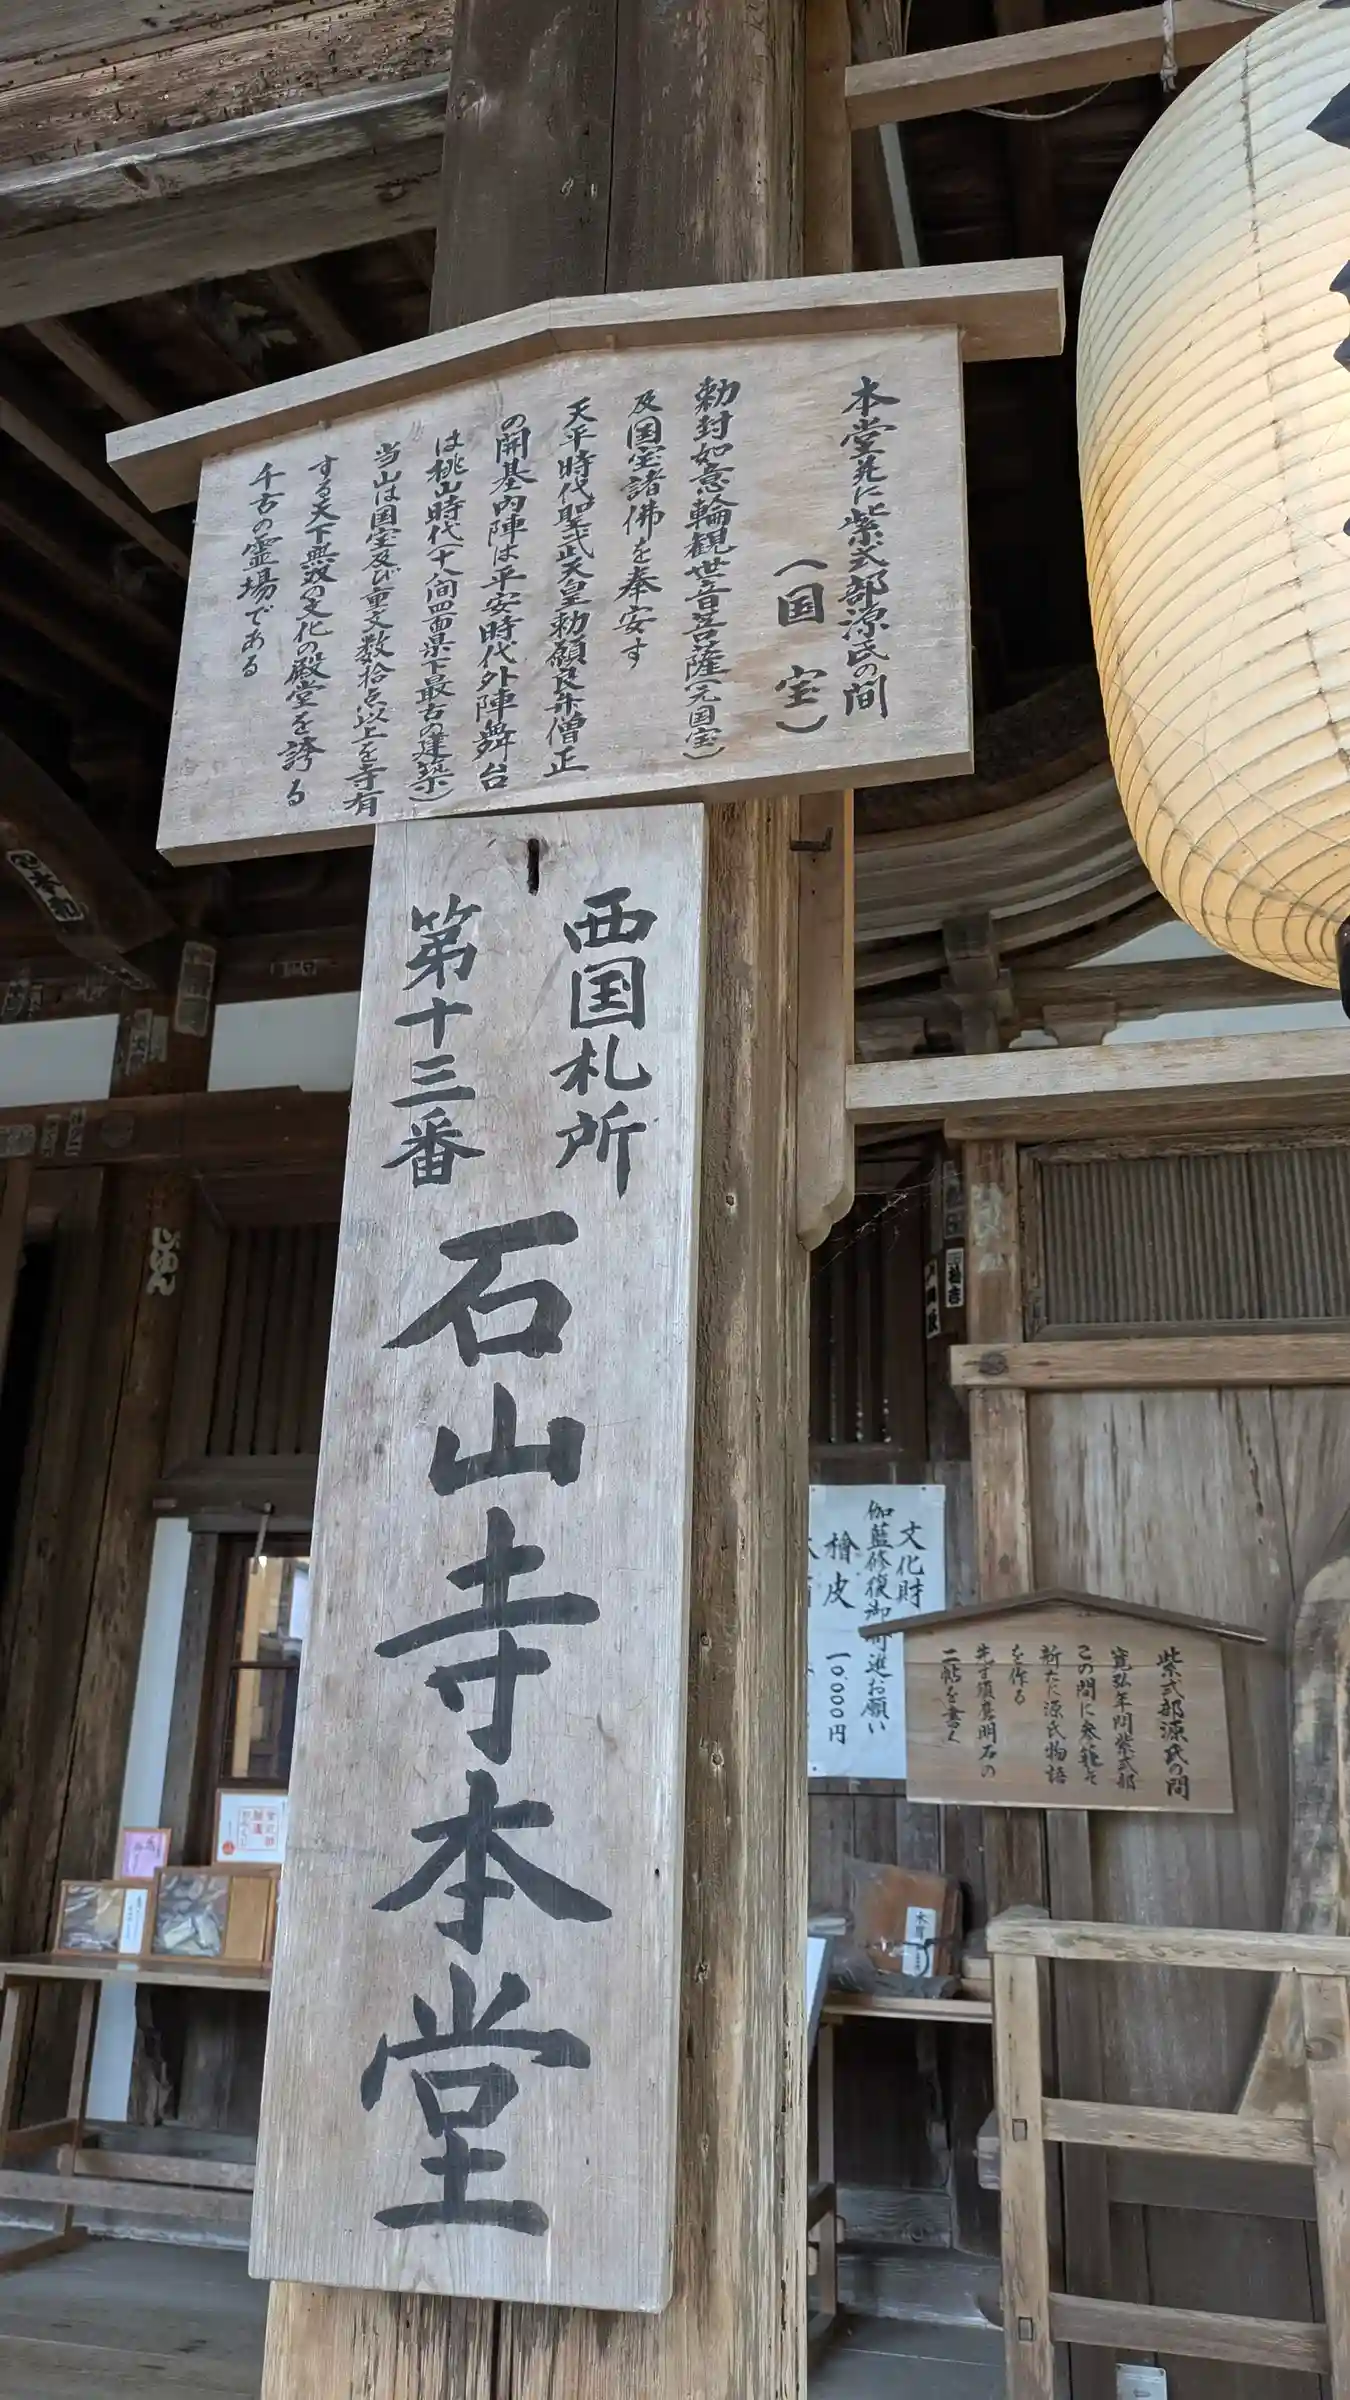 本堂並に紫式部源氏の間
(国宝)
勅封如意輪観世音菩薩(元国宝)
及国宝諸佛を奉安す
天平時代聖武天皇勅願良弁僧正
の開基内陣は平安時代外陣舞台
は桃山時代(十八間四面県下最古の建築)
当山は国宝及び重文数拾点以上を寺有
する天下無双の文化の殿堂を誇る
千古の霊場である
西国札所
第十三番
石山寺本堂
文化財
伽藍修復御寄進お願い
檜皮 一〇.〇〇〇円
紫式部源氏の間
寛弘年間紫式部
この間に参籠し
新たに源氏物語
を作る
先ず須磨明石の
二帖を書く